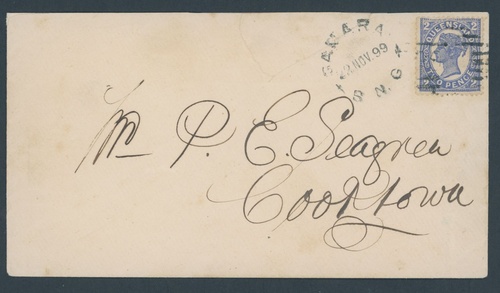 SAMARA
2 NOV. 99
B. N. G.
QUEENSLAND
2 2
TWO PENCE
Mr P. E. Seagren
Cooktown